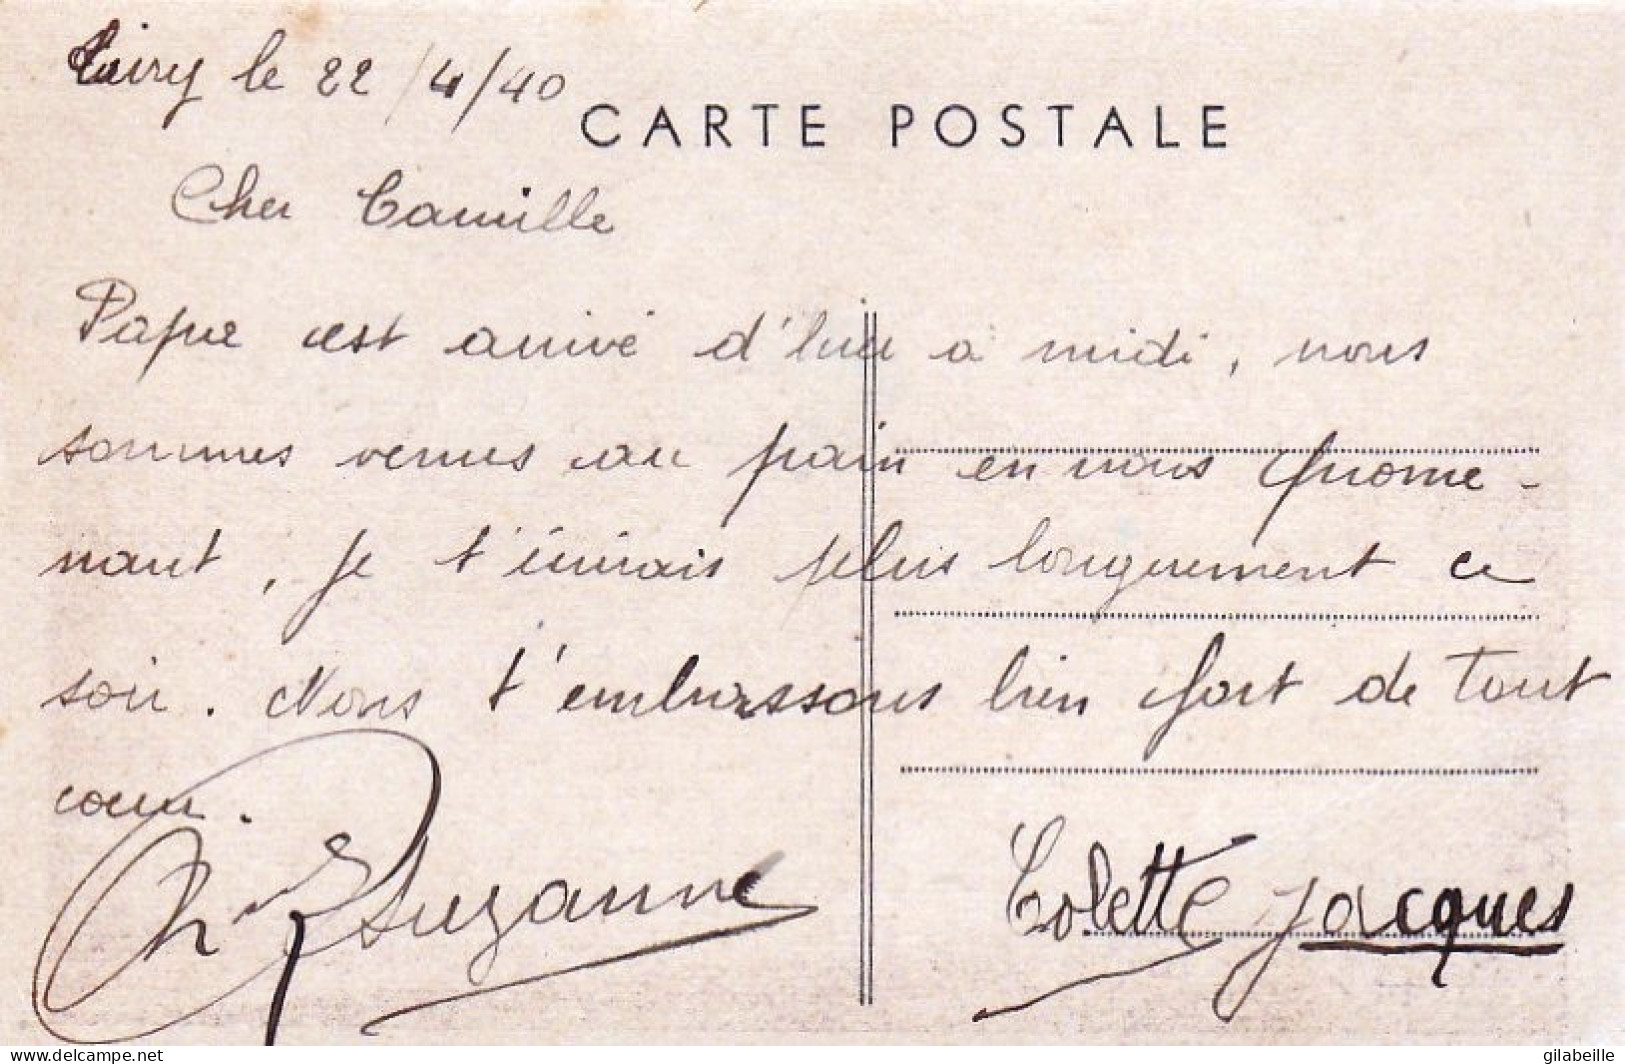 le 22/4/40
CARTE POSTALE
Cher Camille
Papa est arrivé d'hier a midi, nous
sommes venus au pain en nous prome-
nant, je t'écrirais plus longuement ce
soir. Nous t'embrassons bien fort de tout
cœur.
Suzanne Colette Jacques
www.delcampe.net
gilabeille